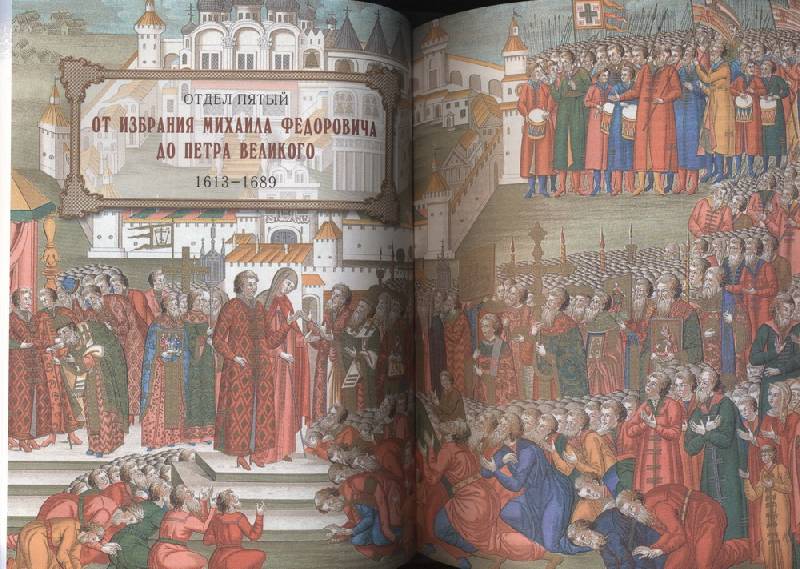 ОТДЕЛ ПЯТЫЙ
ОТ ИЗБРАНИЯ МИХАИЛА ФЕДОРОВИЧА
ДО ПЕТРА ВЕЛИКОГО
1613–1689